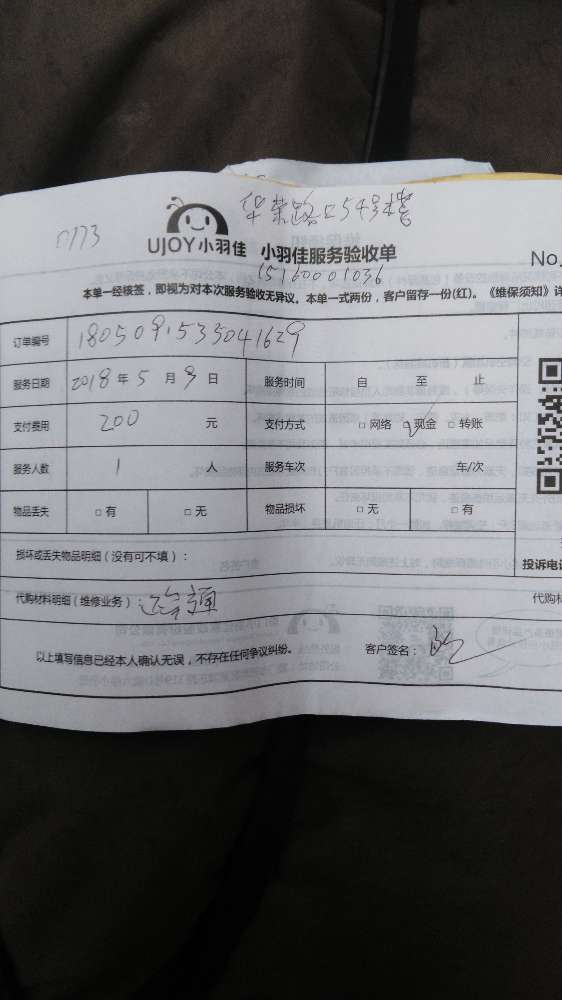 华荣路口54号楼
UJOY小羽佳 小羽佳服务验收单
No.
15160001036
本单一经核签，即视为对本次服务验收无异议。本单一式两份，客户留存一份(红)。《维保须知》详
订单编号 180509.535041629
服务日期 2018 年 5 月 9 日 服务时间 自 至 止
支付费用 200 元 支付方式 □ 网络 □ 现金 □ 转账
服务人数 1 人 服务车次 车/次
物品丢失 □ 有 □ 无 物品损坏 □ 无 □ 有
损坏或丢失物品明细（没有可不填）：
投诉电话
代购材料明细（维修业务）：
代购材
以上填写信息已经本人确认无误，不存在任何争议纠纷。 客户签名：